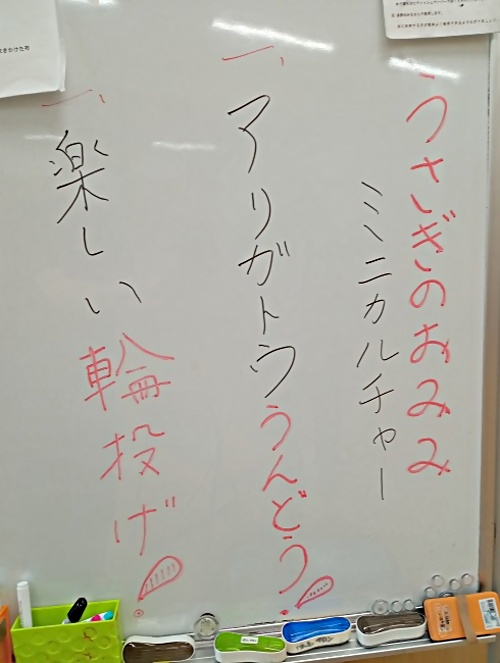 うさぎのおみみ
ミニカルチャー
一、アリガトウうんどう!
一、楽しい輪投げ!